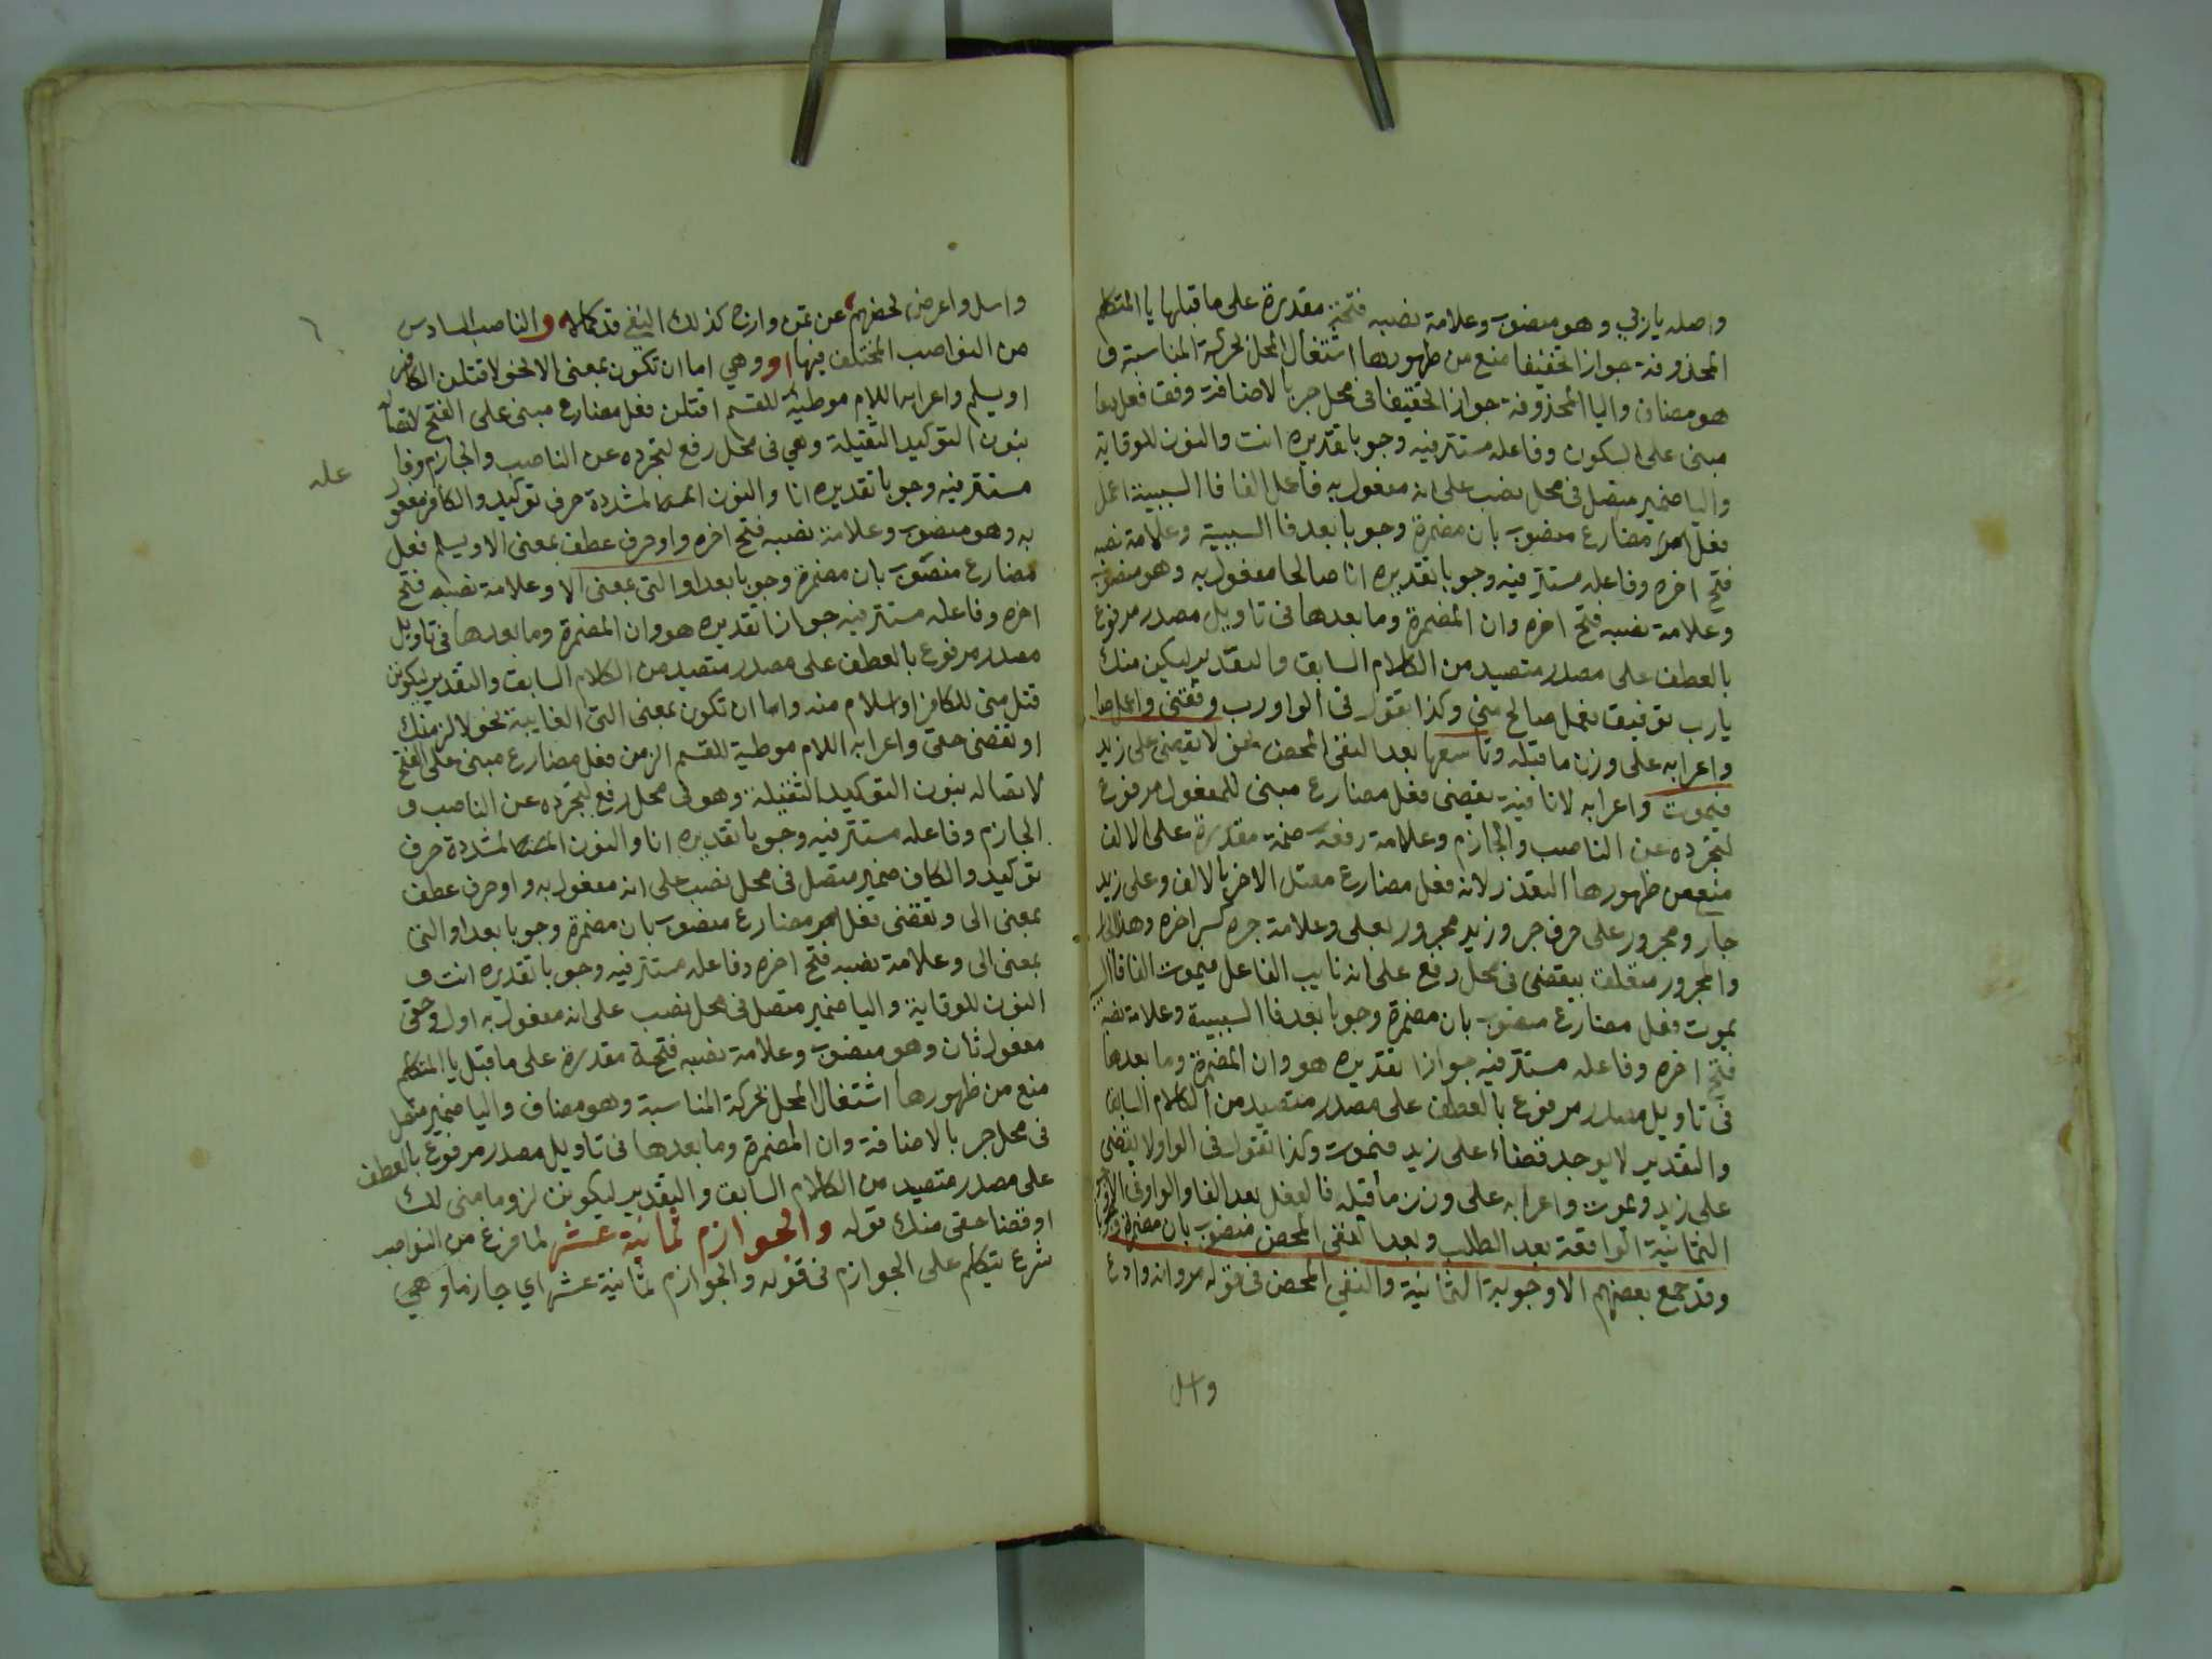 واصله ياربي وهو منصوب وعلامة نصبه فتحة مقدرة على ما قبلها يا المتكلم
المحذوفة جوازا تخفيفا منع من ظهورها اشتغال المحل بحركة المناسبة و
هو مضاف واليا المحذوفة جوازا تخفيفا في محل جر بالاضافة وفق فعل دعا
مبنى على السكون وفاعله مستتر فيه وجوبا تقديره انت والنون للوقاية
واليا ضمير متصل في محل نصب على انه مفعول به فاعمل الفا فا السببية اعمل
فعل مضارع منصوب بان مضمرة وجوبا بعد فا السببية وعلامة نصبه
فتح اخره وفاعله مستتر فيه وجوبا تقديره انا صالحا مفعول به وهو منصوب
وعلامة نصبه فتح اخره وان المضمرة وما بعدها في تاويل مصدر مرفوع
بالعطف على مصدر متصيد من الكلام السابق والتقدير ليكن منك
يارب توفيق فعمل صالح مني وكذا تقول في الواو رب وفقنى واعمل صا
واعرابه على وزن ما قبله وتاسعها بعد النفى المحض نحو لا يقضى على زيد
فيموت واعرابه لا نافية يقضى فعل مضارع مبنى للمفعول مرفوع
لتجرده عن الناصب والجازم وعلامة رفعه ضمة مقدرة على الالف
منع من ظهورها التعذر لانه فعل مضارع معتل الاخر بالالف وعلى زيد
جار ومجرور على حرف جر وزيد مجرور بعلى وعلامة جره كسر اخره وهذا الجا
والمجرور متعلق بيقضى في محل رفع على انه نايب الفاعل فيموت الفا فا ال
يموت فعل مضارع منصوب بان مضمرة وجوبا بعد فا السببية وعلامة نصبه
فتح اخره وفاعله مستتر فيه جوازا تقديره هو وان المضمرة وما بعدها
في تاويل مصدر مرفوع بالعطف على مصدر متصيد من الكلام السابق
والتقدير لا يوجد قضاء على زيد فموت وكذا تقول في الواو لا يقضى
على زيد ويموت واعرابه على وزن ما قبله فالفعل بعد الفا والواو في الاجوبة
الثمانية الواقعة بعد الطلب وبعد النفى المحض منصوب بان مضمرة وجوبا
وقد جمع بعضهم الاجوبة الثمانية والنفي المحض في قوله مر وانه وادع
واسل
واسل واعرض لحضهم عن تمن وارج كذلك النفي قد كملا والناصب السادس
من النواصب المختلف فيها او وهي اما ان تكون بمعنى الا نحو لاقتلن الكافر
او يسلم واعرابه اللام موطية للقسم اقتلن فعل مضارع مبنى على الفتح لاتصا
بنون التوكيد الثقيلة وهي في محل رفع لتجرده عن الناصب والجازم وفا
عله
مستتر فيه وجوبا تقديره انا والنون المشددة حرف توكيد والكافر مفعو
به وهو منصوب وعلامة نصبه فتح اخره واو حرف عطف بمعنى الا ويسلم فعل
مضارع منصوب بان مضمرة وجوبا بعد او التي بمعنى الا وعلامة نصبه فتح
اخره وفاعله مستتر فيه جوازا تقديره هو وان المضمرة وما بعدها في تاويل
مصدر مرفوع بالعطف على مصدر متصيد من الكلام السابق والتقدير ليكونن
قتل منى للكافر او اسلام منه واما ان تكون بمعنى التى الغايية نحو لالزمنك
او تقضنى حقى واعرابه اللام موطية للقسم الزمن فعل مضارع مبنى على الفتح
لاتصاله بنون التوكيد الثقيلة وهو في محل رفع لتجرده عن الناصب و
الجازم وفاعله مستتر فيه وجوبا تقديره انا والنون المشددة حرف
توكيد والكاف ضمير متصل في محل نصب على انه مفعول به واو حرف عطف
بمعنى الى وتقضنى فعل مضارع منصوب بان مضمرة وجوبا بعد او التى
بمعنى الى وعلامة نصبه فتح اخره وفاعله مستتر فيه وجوبا تقديره انت و
النون للوقاية واليا ضمير متصل في محل نصب على انه مفعول به اول وحقى
مفعول ثان وهو منصوب وعلامة نصبه فتحة مقدرة على ما قبل يا المتكلم
منع من ظهورها اشتغال المحل بحركة المناسبة وهو مضاف واليا ضمير متصل
في محل جر بالاضافة وان المضمرة وما بعدها في تاويل مصدر مرفوع بالعطف
على مصدر متصيد من الكلام السابق والتقدير ليكونن لزوما منى لك
او قضا حقى منك قوله والجوازم ثمانية عشر لما فرغ من النواصب
شرع يتكلم على الجوازم في قوله والجوازم ثمانية عشر اي جازما وهي